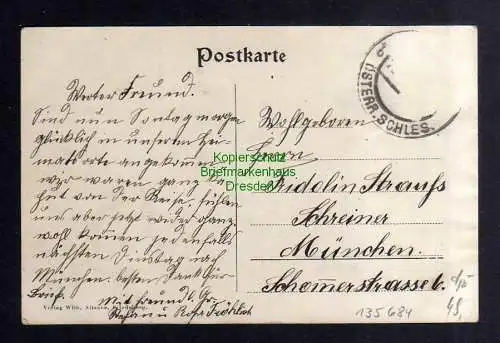 Postkarte
ÖSTERR.-SCHLES.
Werter Freund.
Sind nun Sonntag morgen
glücklich in unserem Hei-
matsorte angekommen
wir waren ganz
von der Reise, fühlen
uns aber jetzt wieder ganz
wohl kommen jedenfalls
nächsten Dienstag nach
München. besten Dank für
Brief.
Mit freundl. Gr.
Stefan u Rosa Fröhlich
Wohlgeboren
Herrn
Fridolin Strauss
Schreiner
München.
Schommerstrasse
Kopierschutz
Briefmarkenhaus
Dresden
Verlag Wilh.
135684